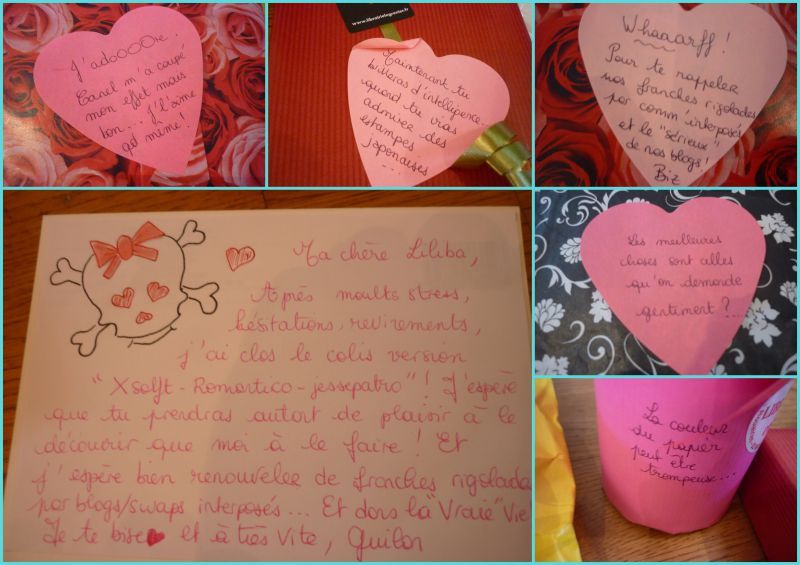 J'adoOOOre.
Canel m'a coupé
mon effet mais
bon... J'l'aime
qd même!
www.librairielegoutte.fr
Maintenant tu
brilleras d'intelligence
quand tu iras
admirer des
estampes
japonaises
...
Whaaarff!
Pour te rappeler
nos franches rigolades
par comm' interposés
et le "sérieux"
de nos blogs!
Biz
Ma chère Liliba,
Après moults stress,
hésitations, revirements,
j'ai clos le colis version
"Xsoft-Romantico-jessepatro"! J'espère
que tu prendras autant de plaisir à le
découvrir que moi à le faire! Et
j'espère bien renouveler de franches rigolades
par blogs/swaps interposés... Et dans la "Vraie" Vie
Je te bise et à très vite,
Les meilleures
choses sont celles
qu'on demande
gentiment?...
La couleur
du papier
peut être
trompeuse...